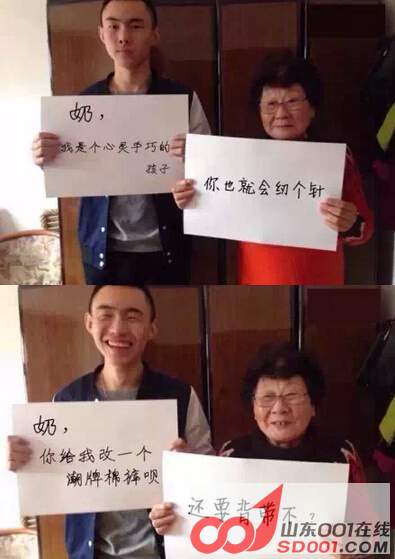 奶，
我是个心灵手巧的
孩子
你也就会纫个针
奶，
你给我改一个
潮牌棉裤呗
还要背带不？
山东001在线
SD001.COM